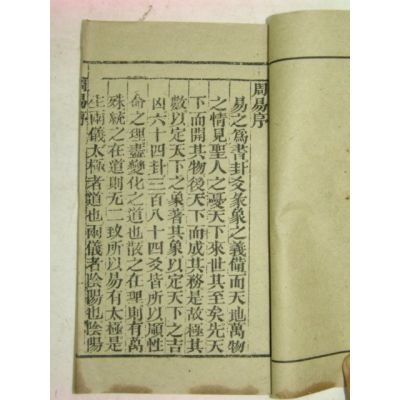 周易序
易之爲書卦爻彖象之義備而天地萬物
之情見聖人之憂天下來世其至矣先天
下而開其物後天下而成其務是故極其
數以定天下之象著其象以定天下之吉
凶六十四卦三百八十四爻皆所以順性
命之理盡變化之道也散之在理則有萬
殊統之在道則无二致所以易有太極是
生兩儀太極者道也兩儀者陰陽也陰陽
周易序